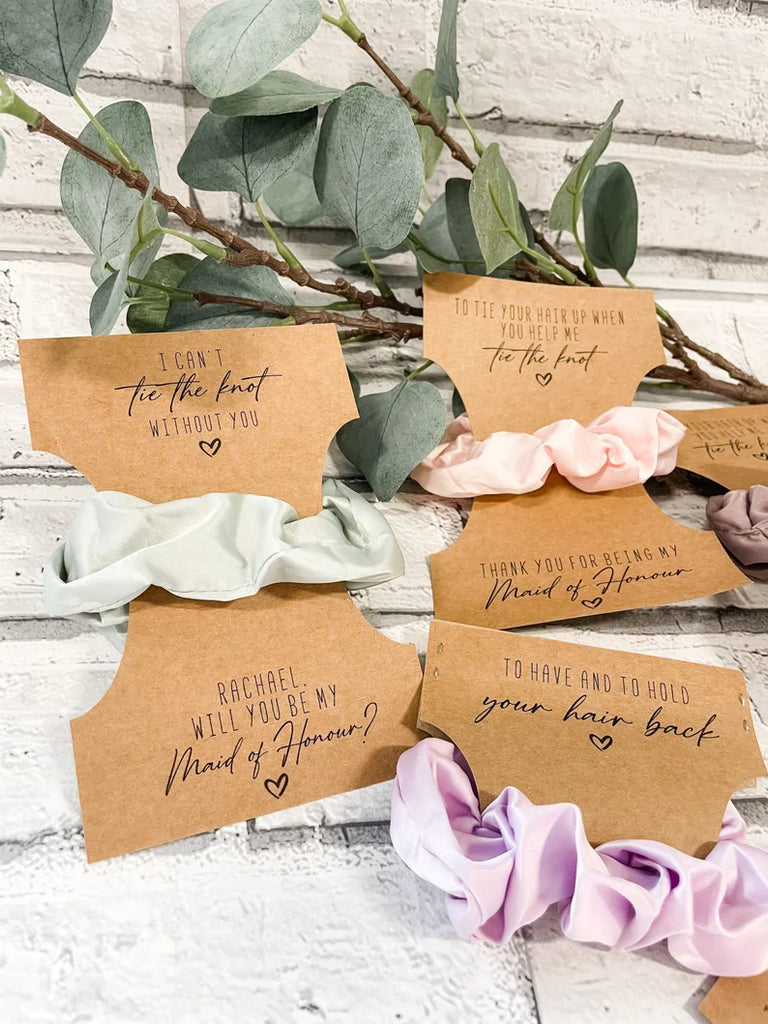 I CAN'T
tie the knot
WITHOUT YOU
RACHAEL.
WILL YOU BE MY
Maid of Honour?
TO TIE YOUR HAIR UP WHEN
YOU HELP ME
tie the knot
THANK YOU FOR BEING MY
Maid of Honour
tie the knot
TO HAVE AND TO HOLD
your hair back